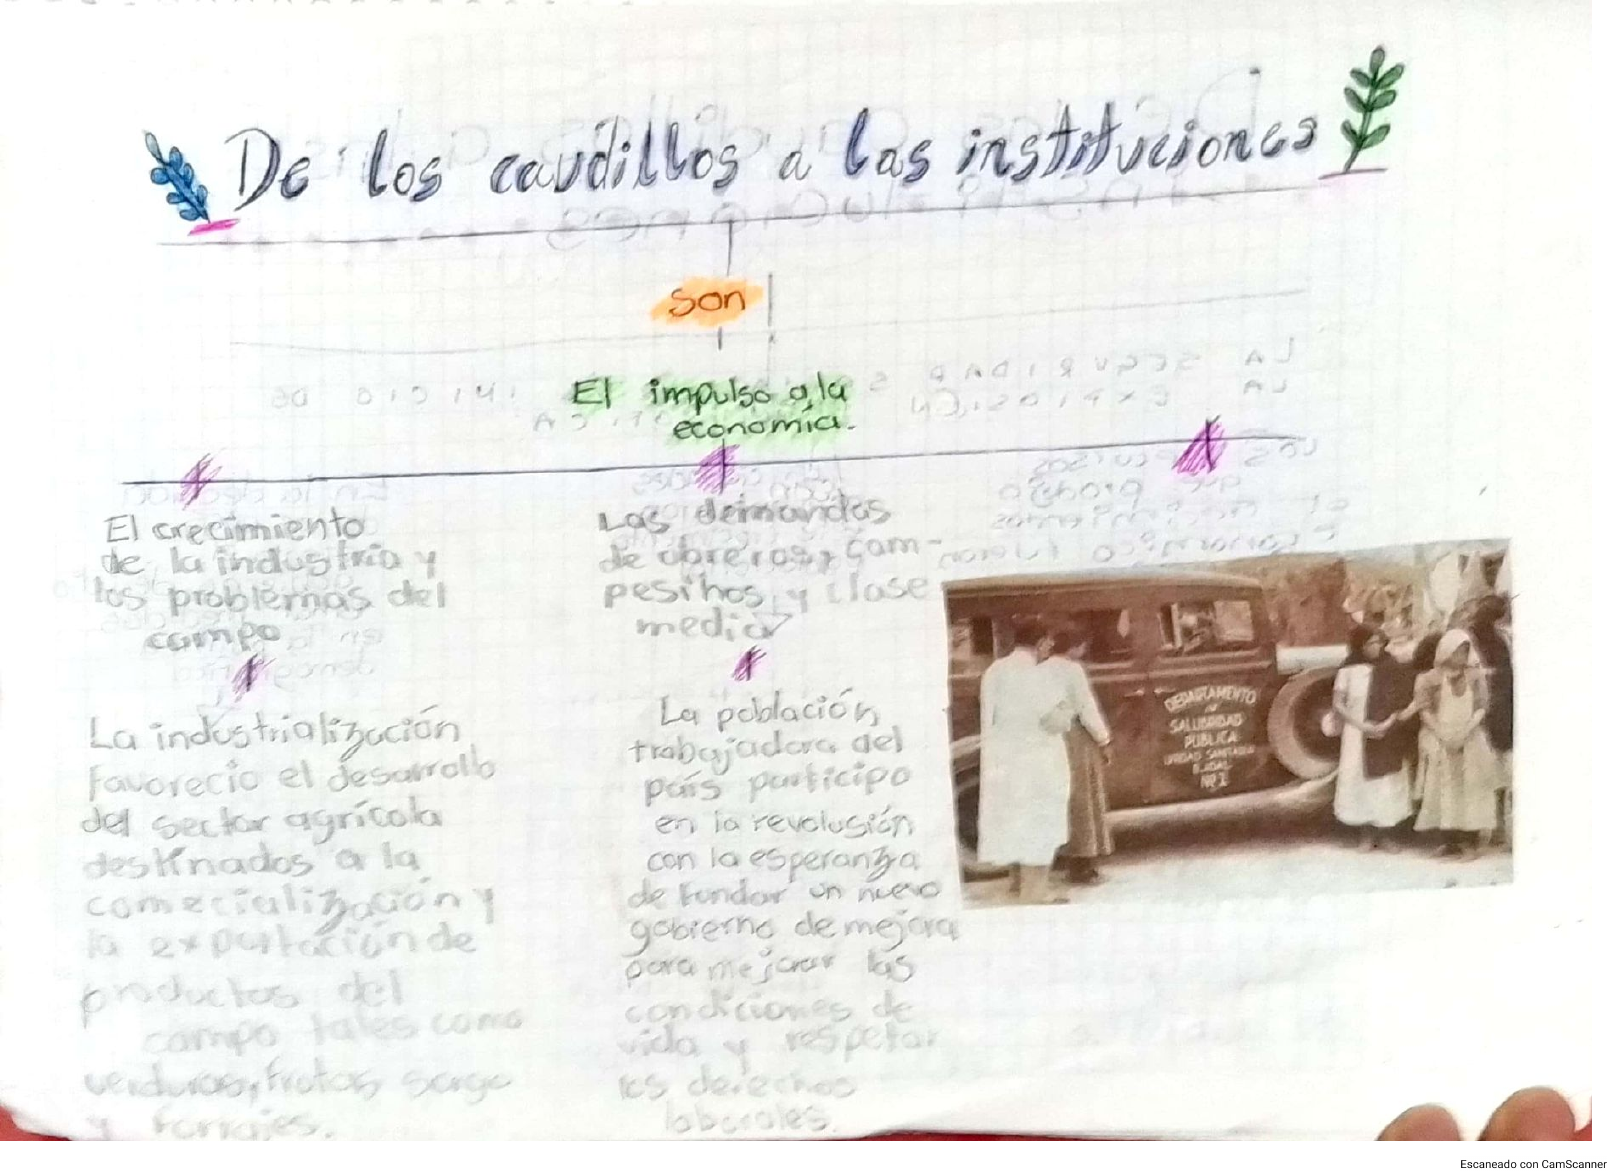 De los caudillos a las instituciones
son
El impulso a la
economía.
El crecimiento
de la industria y
los problemas del
campo
La industrialización
favorecio el desarrollo
del sector agrícola
destinados a la
comecialización y
la exportación de
productos del
campo tales como
verduras, frutas sorgo
y forrajes.
Las demandas
de obreros, cam-
pesinos y clase
media
La población
trabajadora del
país participo
en la revolusión
con la esperanza
de fundar un nuevo
gobierno de mejora
para mejorar las
condiciones de
vida y respetar
los derechos
laborales.
DEPARTAMENTO
DE
SALUBRIDAD
PUBLICA
UNIDAD SANITARIA
EJIDAL
Nº 1
Escaneado con CamScanner